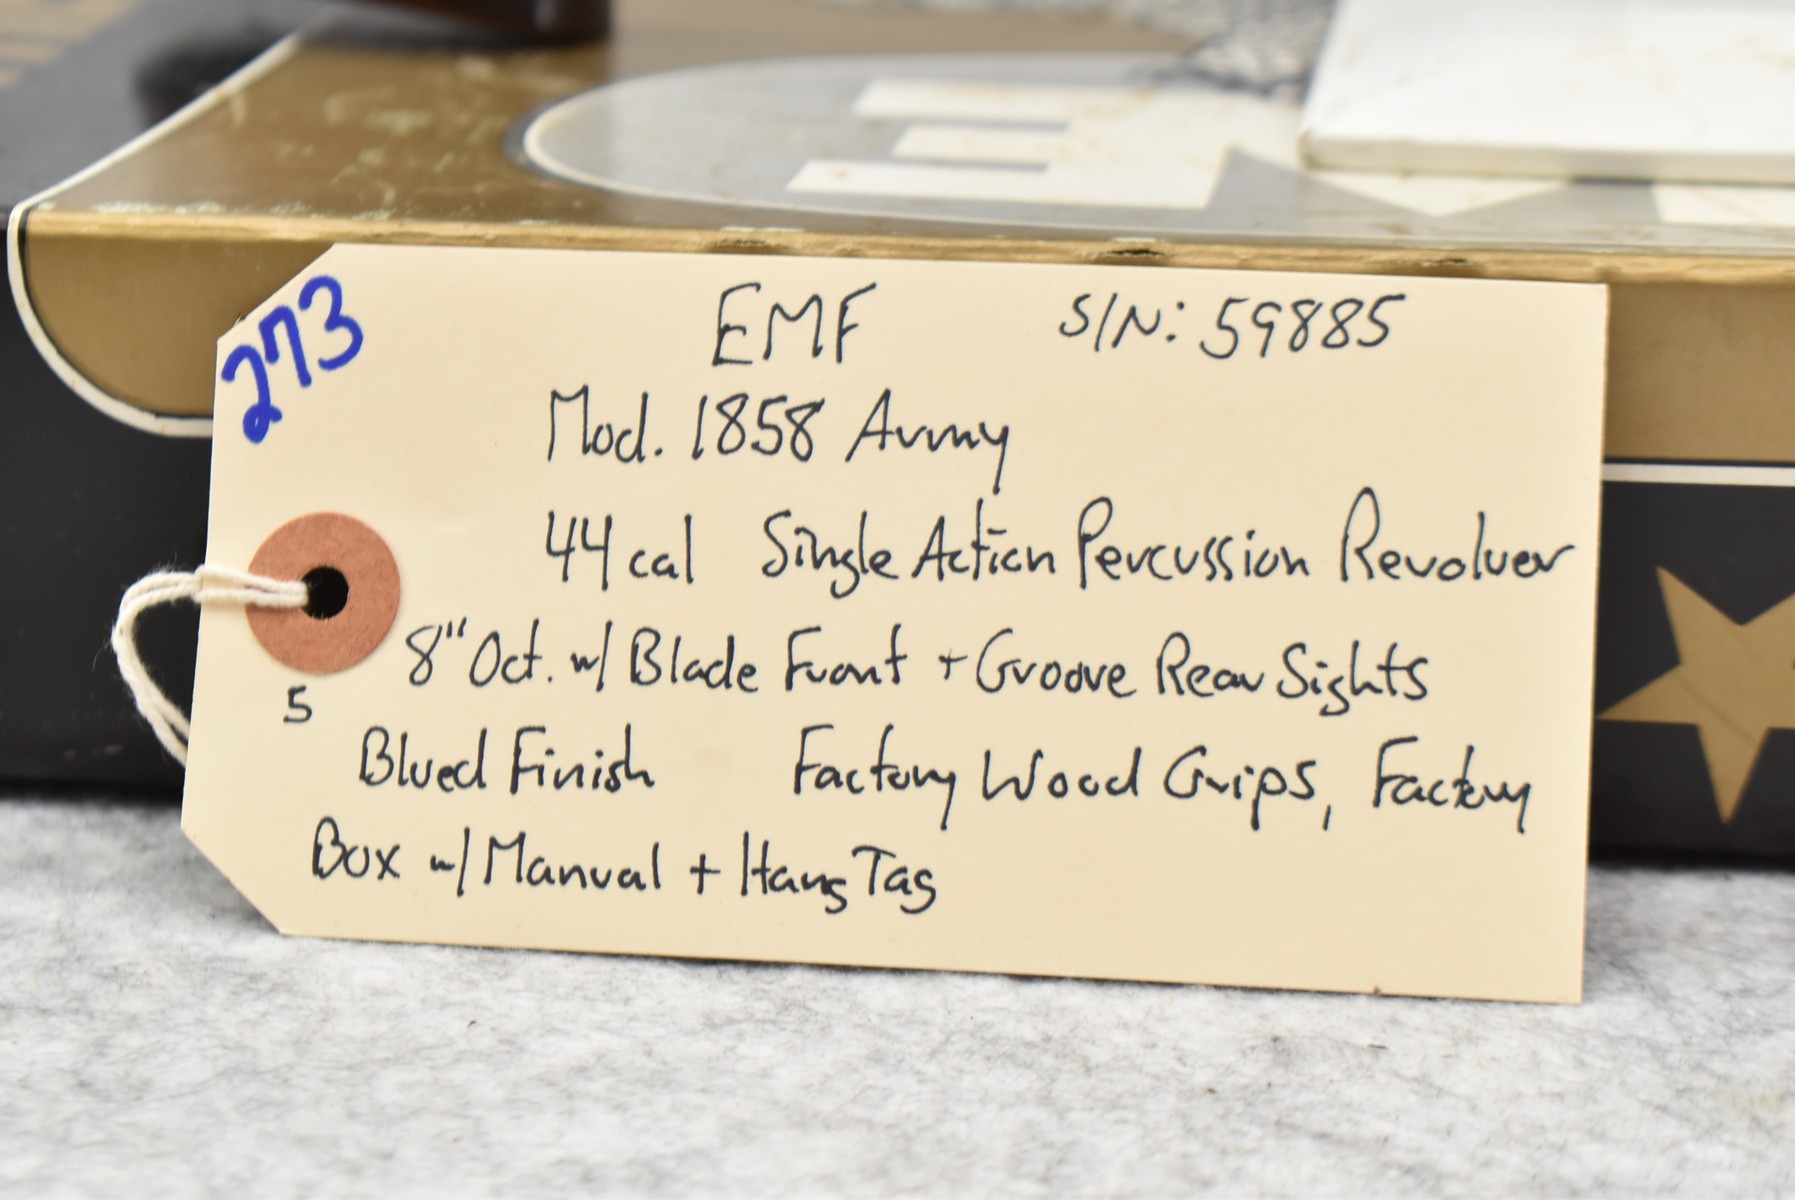 273
EMF S/N: 59885
Mod. 1858 Army
44 cal Single Action Percussion Revolver
8" Oct. w/ Blade Front + Groove Rear Sights
5
Blued Finish Factory Wood Grips, Factory
Box w/ Manual + Hang Tag